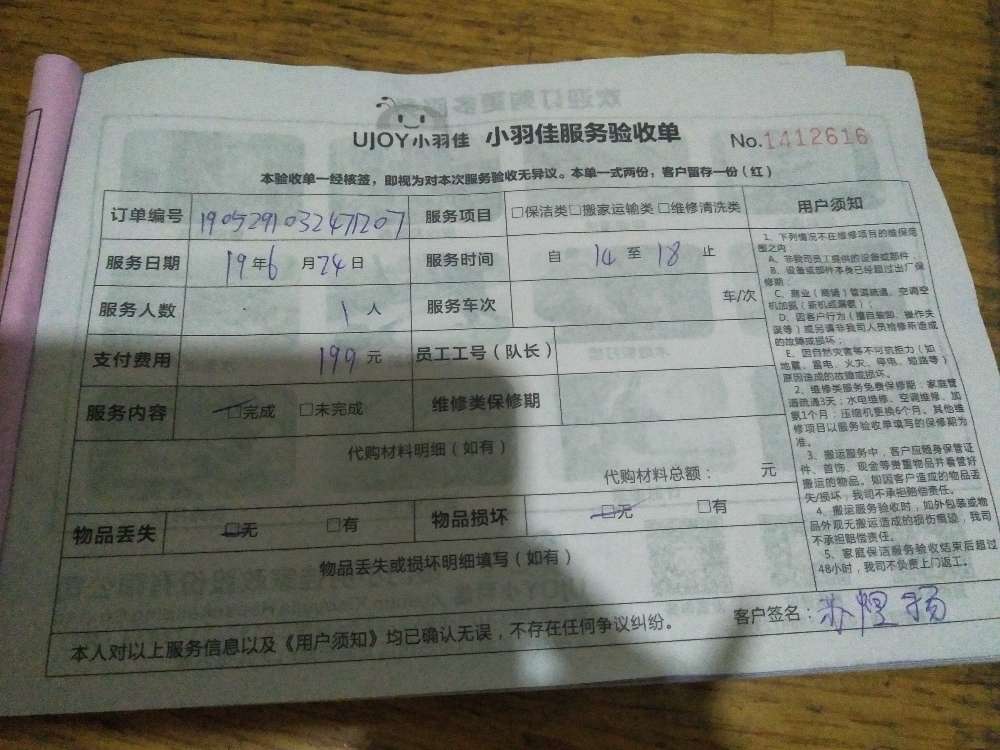 UJOY小羽佳 小羽佳服务验收单 No.1412616
本验收单一经核签，即视为对本次服务验收无异议。本单一式两份，客户留存一份（红）
订单编号 1905291032471207 服务项目 □保洁类□搬家运输类□维修清洗类
服务日期 19年6月24日 服务时间 自 14 至 18 止
服务人数 1人 服务车次 车/次
支付费用 199元 员工工号（队长）
服务内容 □完成 □未完成 维修类保修期
代购材料明细（如有）
代购材料总额： 元
物品丢失 □无 □有 物品损坏 □无 □有
物品丢失或损坏明细填写（如有）
本人对以上服务信息以及《用户须知》均已确认无误，不存在任何争议纠纷。
客户签名：苏煜扬
用户须知
1、下列情况不在维修项目的维保范
围之内
A、非我司员工提供的设备或部件
B、设备或部件本身已经超过出厂保
修期
C、商业（商铺）管道疏通、空调空
机加氨（新机或漏氨）；
D、因客户行为（擅自装卸、操作失
误等）或另请非我司人员检修所造成
的故障或损坏；
E、因自然灾害等不可抗拒力（如：
地震、雷电、火灾、停电、短路等）
原因造成的故障或损坏。
2、维修类服务免费保修期：家庭管
道疏通3天；水电维修、空调维修、加
氨1个月；压缩机更换6个月。其他维
修项目以服务验收单填写的保修期为
准。
3、搬运服务中，客户应随身保管证
件、首饰、现金等贵重物品并看管好
搬运的物品。如因客户造成的物品丢
失/损坏，我司不承担赔偿责任。
4、搬运服务验收时，如外包装或物
品外观无搬运造成的损伤痕迹，我司
不承担赔偿责任。
5、家庭保洁服务验收结束后超过
48小时，我司不负责上门返工。